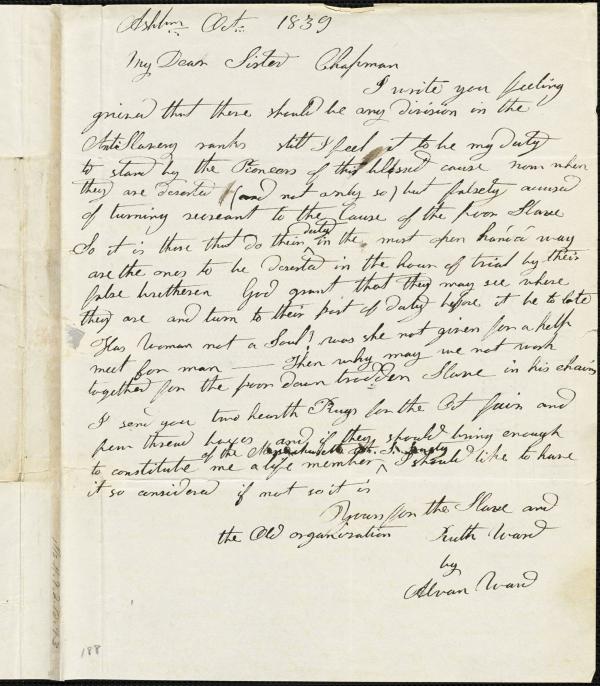 Ashbm Oct 1839
My Dear Sister Chapman
I write you feeling
grieved that there should be any division in the
AntiSlavery ranks still I feel it to be my duty
to stand by the Pioneers of this blessed cause now when
they are deserted (and not only so) but falsely accused
of turning recreant to the Cause of the poor Slave
So it is those that do their duty in the most open handed way
are the ones to be deserted in the hour of trial by their
false bretheren God grant that they may see where
they are and turn to their post of duty before it be to late
Has Woman not a Soul? was she not given for a help
meet for man — Then why may we not work
together for the poor down trodden Slave in his chains
I send you two hearth Rugs for the Oct fair and
four thread boxes and if they should bring enough
to constitute me a life member of the Massachusetts Society I should like to have
it so considered if not so it is
Yours for the Slave and
the Old organisation Ruth Ward
by
Alvan Ward
188